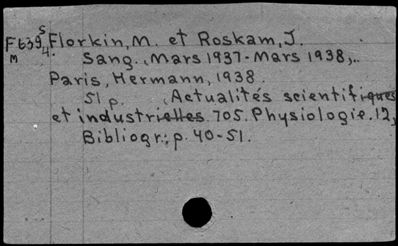 F639 S Florkin, M. et Roskam, J.
M 4. Sang. Mars 1937-Mars 1938,..
Paris, Hermann, 1938.
51 p. (Actualités scientifiques
et industrielles. 705. Physiologie. 12,
Bibliogr.: p. 40-51.